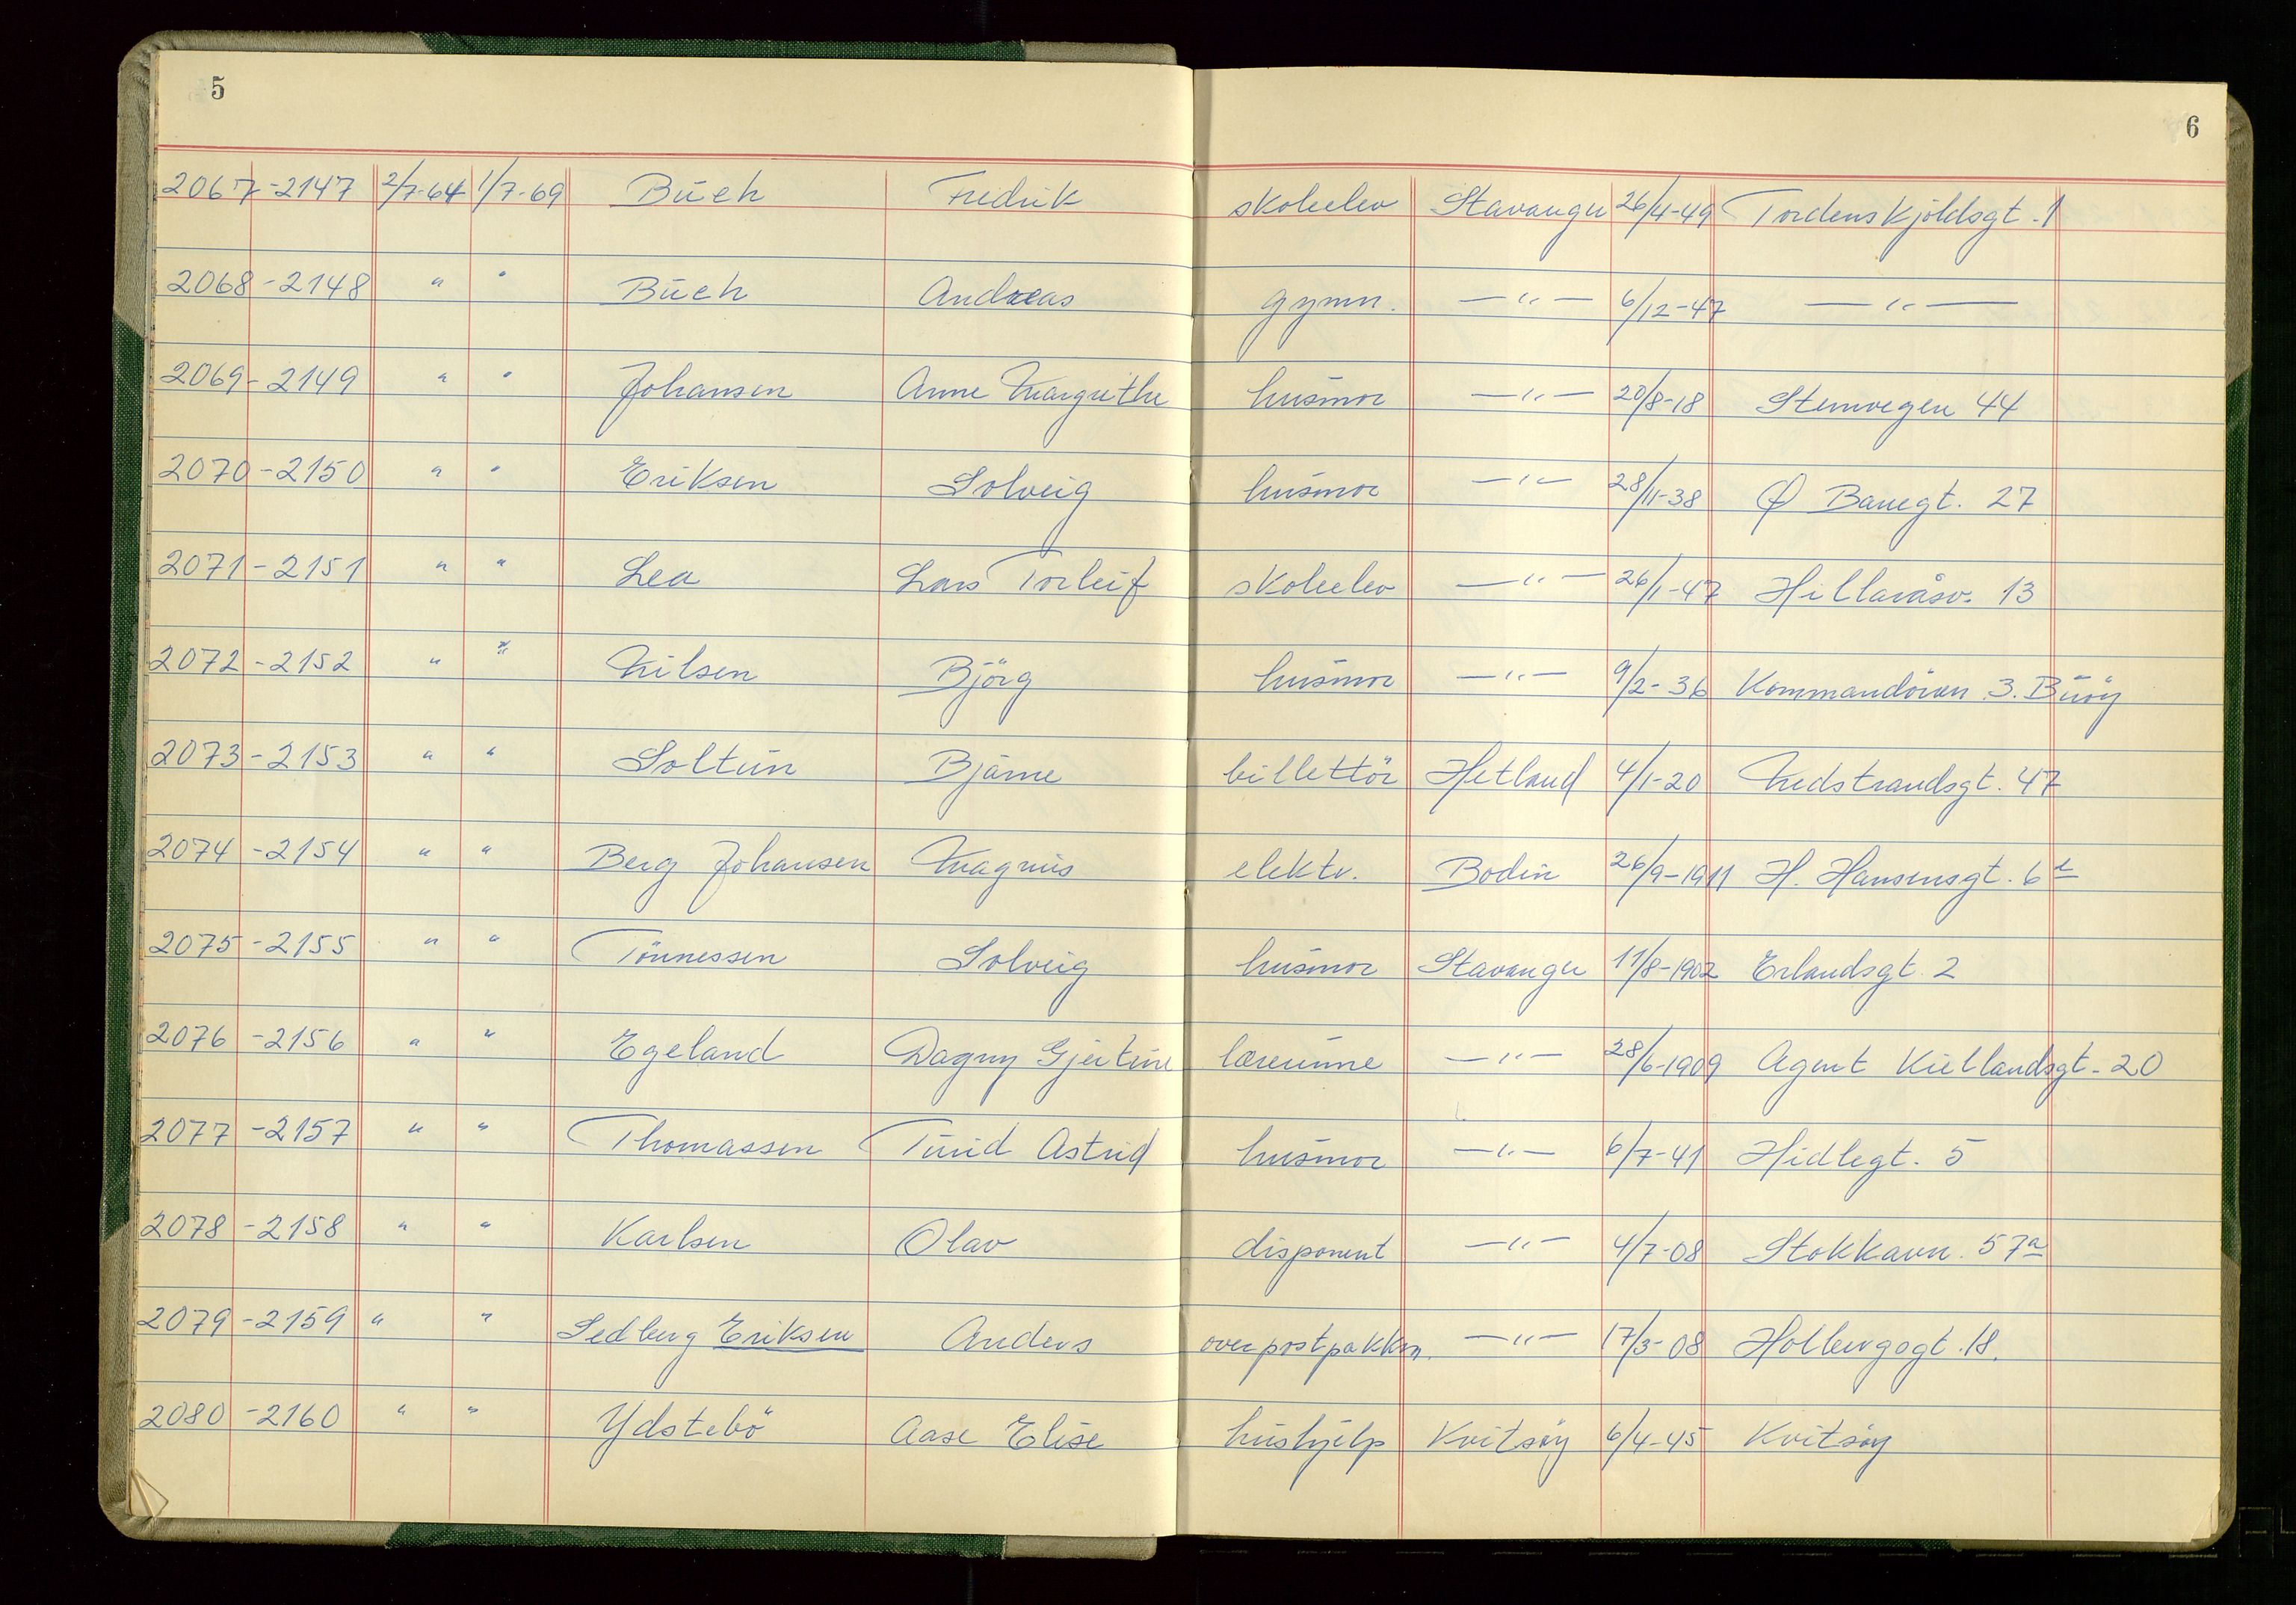 5
6
2067 -2147 2/7-64 1/7-69 Buch Fredrik skoleelev Stavanger 26/4-49 Tordenskjöldsgt. 1
2068 -2148 " " Buch Andreas gymn. —"— 6/12-47 —"—
2069 -2149 " " Johansen Anne Margrethe husmor —"— 20/8-18 Stemvegen 44
2070 -2150 " " Eriksen Solveig husmor —"— 28/11-38 Ø Banegt. 27
2071 -2151 " " Lea Lars Torleif skoleelev —"— 26/1-47 Hillevåsv. 13
2072 -2152 " " Nilsen Björg husmor —"— 9/2-36 Kommandörvn. 3. Buöy
2073 -2153 " " Soltun Bjarne billettör Hetland 4/1-20 Nedstrandsgt. 47
2074 -2154 " " Berg Johansen Magnus elektr. Bodin 26/9-1911 H. Hansensgt. 6
2075 -2155 " " Tönnessen Solveig husmor Stavanger 11/8-1902 Erlandsgt. 2
2076 -2156 " " Egeland Dagny Gjertine lærerinne —"— 28/6-1909 Agent Kiellandsgt. 20
2077 -2157 " " Thomassen Turid Astrid husmor —"— 6/7-41 Hidlegt. 5
2078 -2158 " " Karlsen Olav disponent —"— 4/7-08 Stokkavn. 57a
2079 -2159 " " Sedberg Eriksen Anders overpostpakkm. —"— 17/3-08 Holbergsgt. 18.
2080 -2160 " " Ydstebö Aase Elise hushjelp Kvitsöy 6/4-45 Kvitsöy